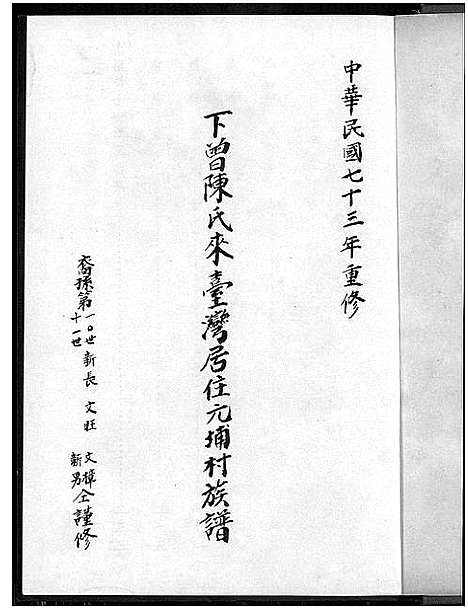 中華民國七十三年重修
下曾陳氏來臺灣居住元埔村族譜
裔孫第一0世 新長 文旺 文樟 仝謹修
十一世 新男